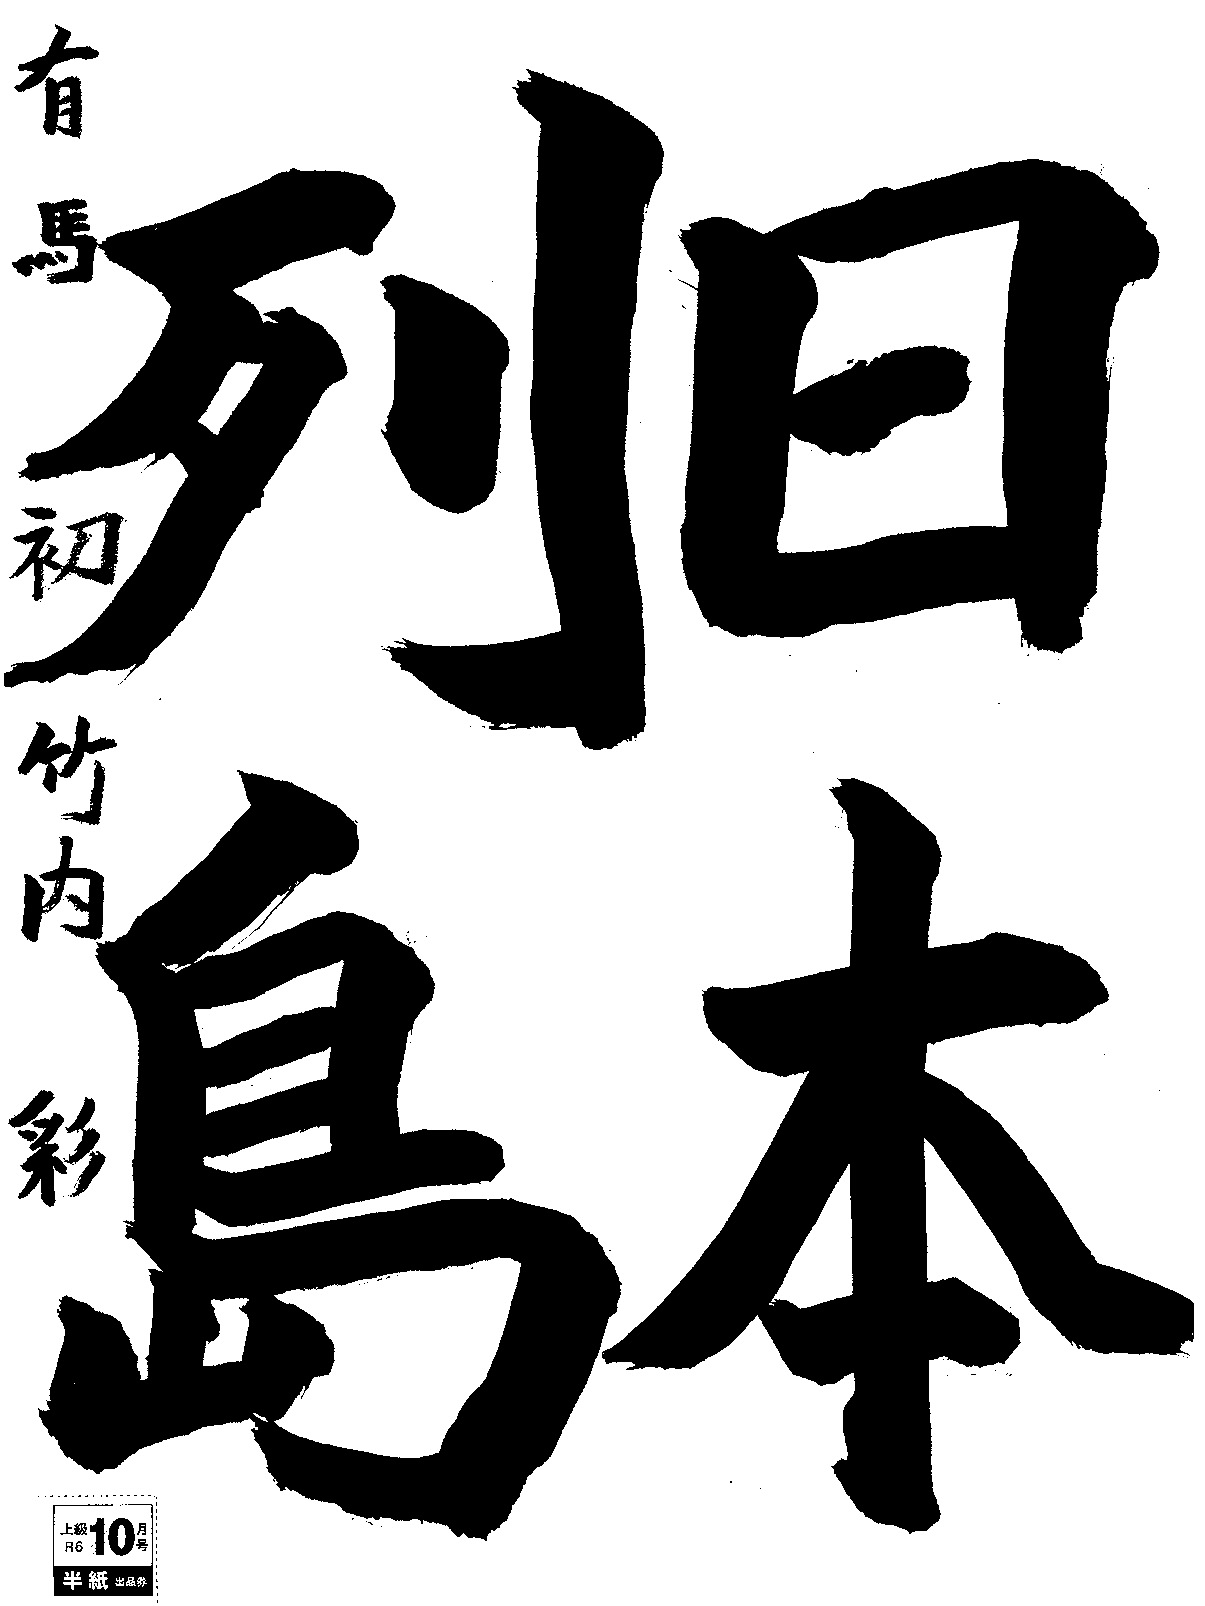 日本
列島
有馬 初 竹内 彩
上級 R6 10月号
半紙 出品券